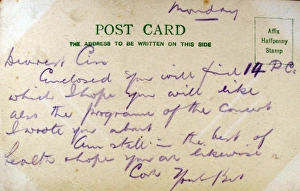 Monday
POST CARD
THE ADDRESS TO BE WRITTEN ON THIS SIDE
Affix
Halfpenny
Stamp
Dearest
Enclosed you will find 14 P.C.
which I hope you will like
also the programe of the concert
I wrote you about
Am still in the best of
health & hope you are likewise